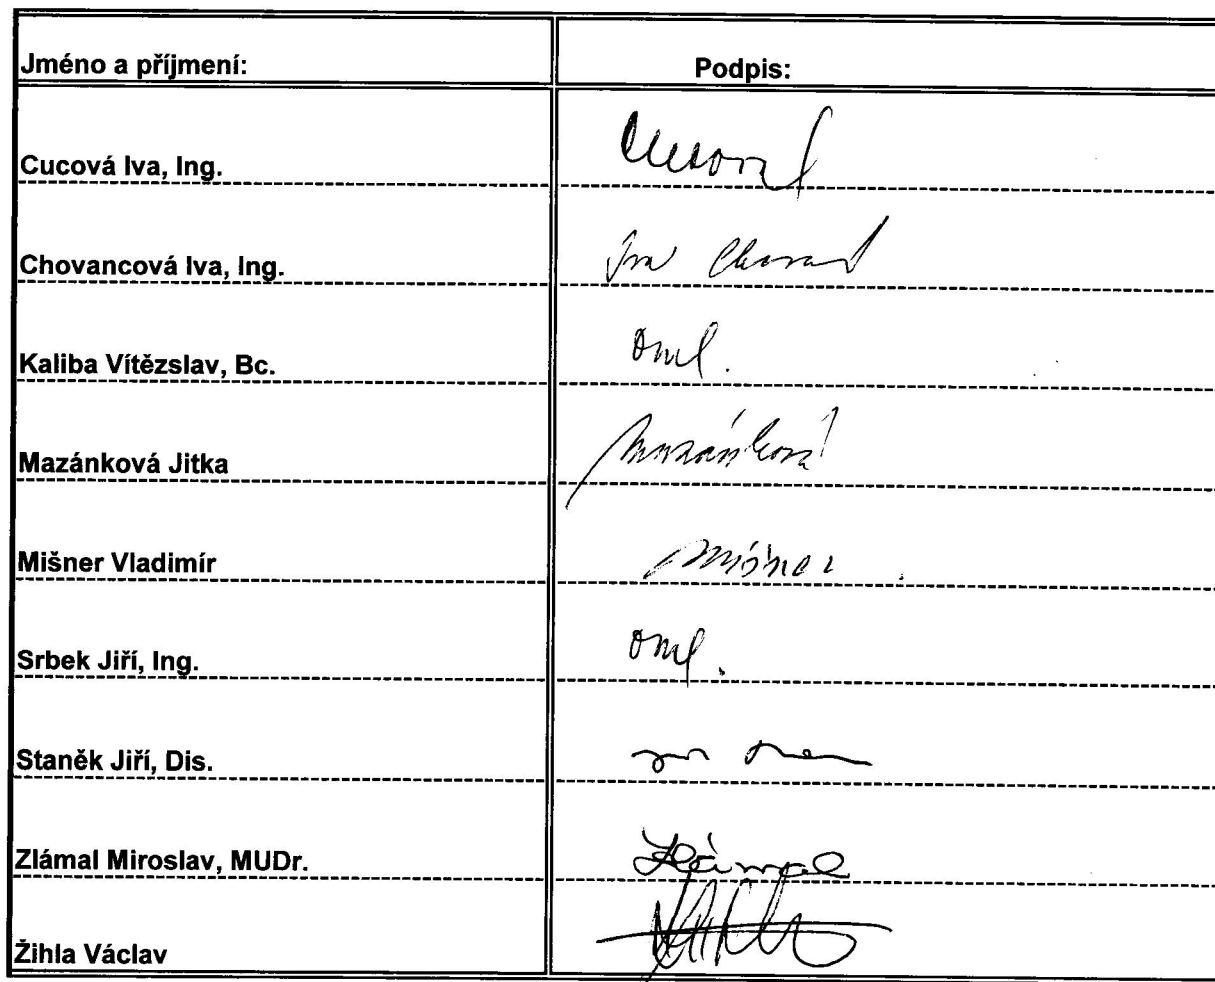 Jméno a příjmení: Podpis:
Cucová Iva, Ing.
Chovancová Iva, Ing. Iva
Kaliba Vítězslav, Bc. oml.
Mazánková Jitka Mazánková
Mišner Vladimír Mišner
Srbek Jiří, Ing. oml.
Staněk Jiří, Dis.
Zlámal Miroslav, MUDr. Zlámal
Žihla Václav